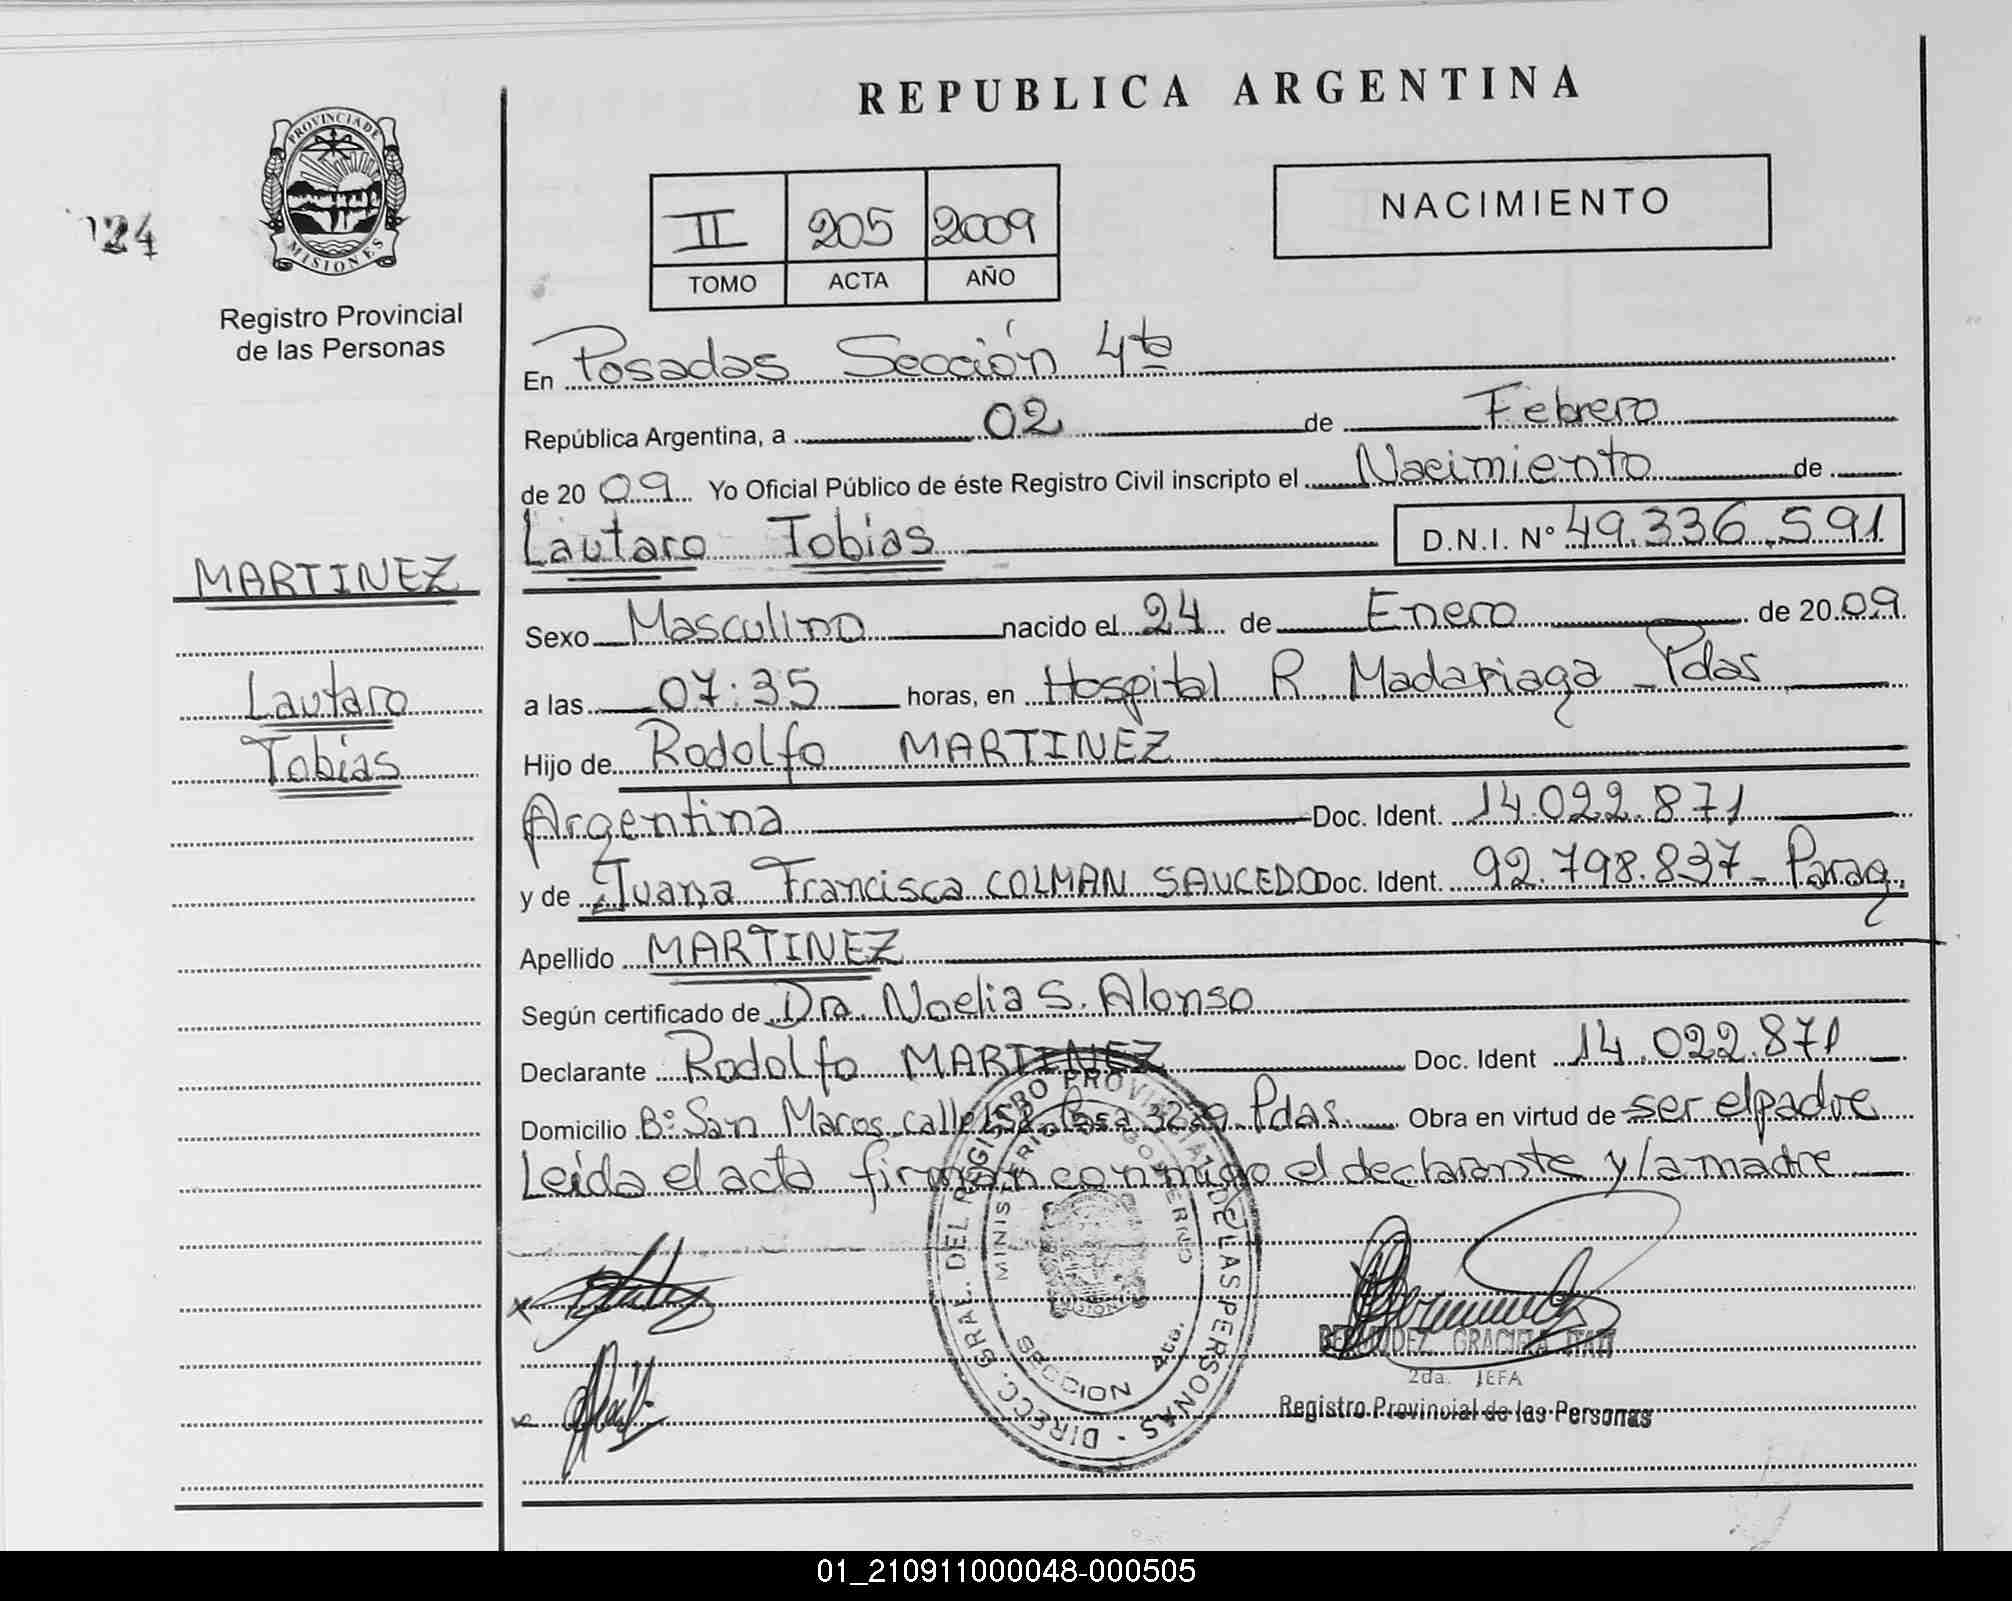 REPUBLICA ARGENTINA
PROVINCIA DE
MISIONES
124
Registro Provincial
de las Personas
NACIMIENTO
II 205 2009
TOMO ACTA AÑO
En Posadas Sección 4ta
República Argentina, a 02 de Febrero
de 2009 Yo Oficial Público de éste Registro Civil inscripto el Nacimiento de
Lautaro Tobias D.N.I. Nº 49.336.591
MARTINEZ
Lautaro
Tobias
Sexo Masculino nacido el 24 de Enero de 2009
a las 07:35 horas, en Hospital R. Madariaga - Pdas
Hijo de Rodolfo MARTINEZ
Argentina Doc. Ident. 14.022.871
y de Juana Francisca COLMAN SAUCEDO Doc. Ident. 92.798.837 - Parag.
Apellido MARTINEZ
Según certificado de Dra. Noelia S. Alonso
Declarante Rodolfo MARTINEZ Doc. Ident 14.022.871
Domicilio Bº San Marcos calle Casa 3239 Pdas. Obra en virtud de ser el padre
Leída el acta firman conmigo el declarante y la madre
DIREC. GRAL. DEL REGISTRO PROVINCIAL DE LAS PERSONAS
MINISTERIO DE GOBIERNO
MISIONES
SECCION 4ta.
BERMUDEZ GRACIELA ITATI
2da. JEFA
Registro Provincial de las Personas
01_210911000048-000505